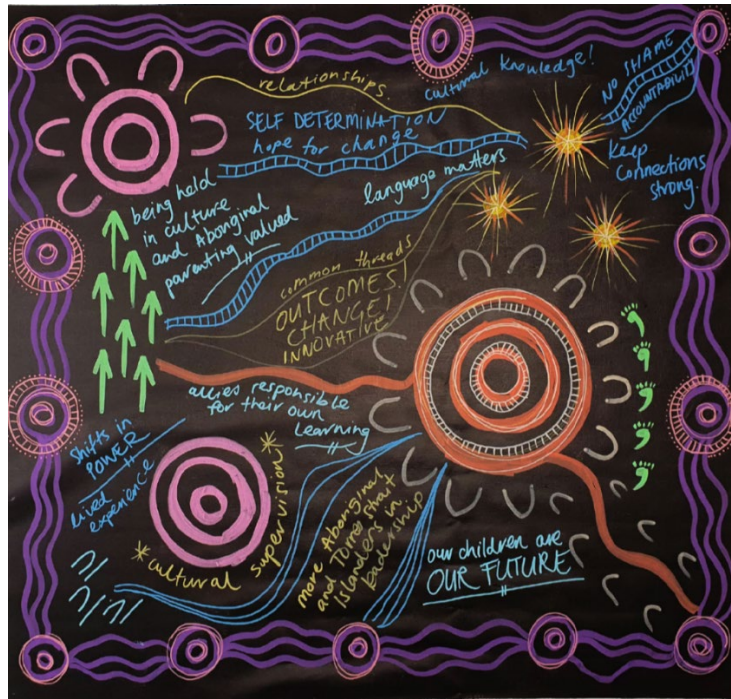 relationships.
cultural knowledge!
NO SHAME
ACCOUNTABILITY
SELF DETERMINATION
hope for change
Keep
connections
strong.
language matters
being held
in culture
and Aboriginal
parenting valued
common threads
OUTCOMES!
CHANGE!
INNOVATIVE
allies responsible
for their own
learning
shifts in
POWER
lived
experience
*cultural supervision*
more Aboriginal
and Torres Strait
Islanders in
leadership
our children are
OUR FUTURE